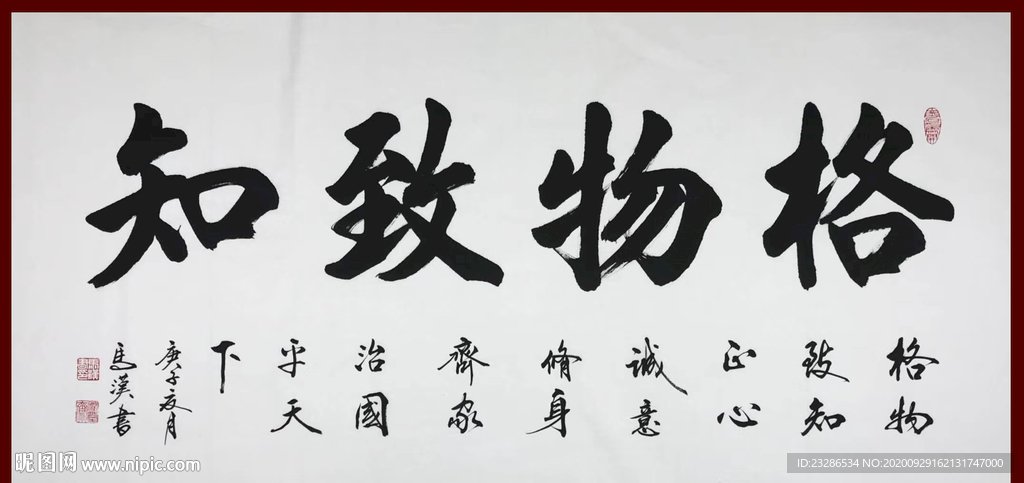 格物致知
格物
致知
正心
誠意
脩身
齊家
治國
平天
下
庚子夏月
馬漢書
昵图网 www.nipic.com
ID:23286534 NO:20200929162131747000